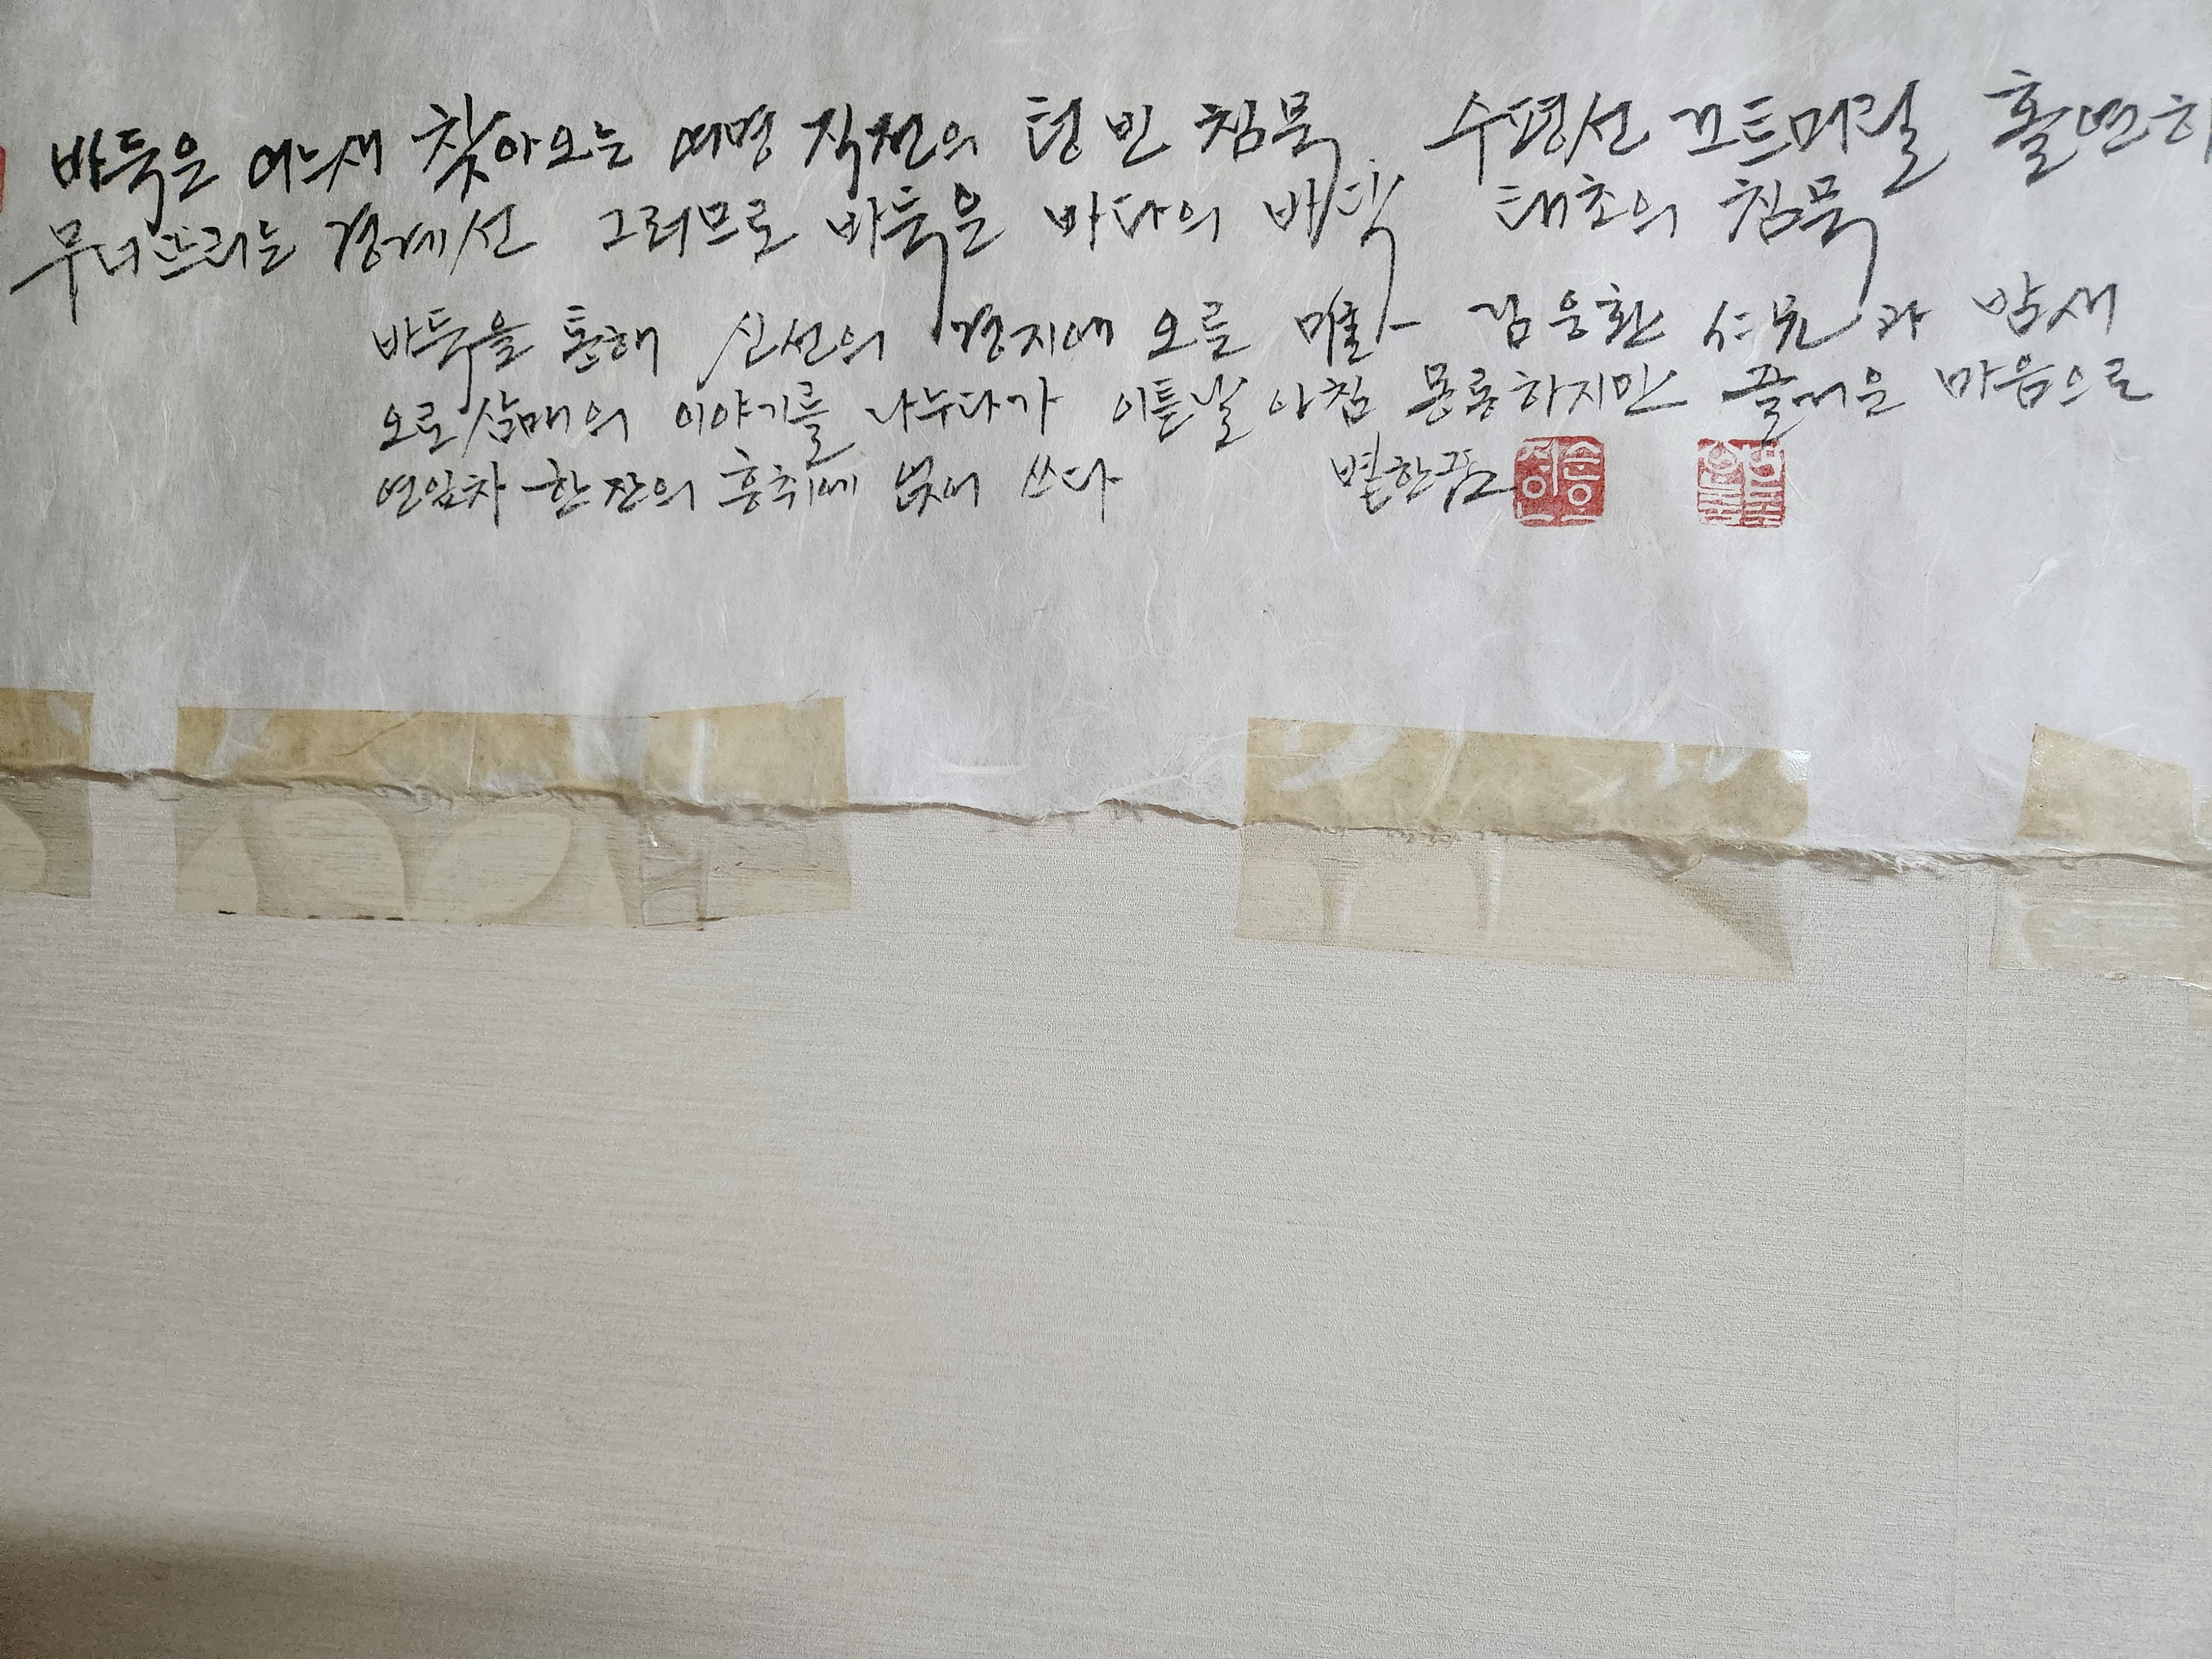 바둑은 어느새 찾아오는 여명 직전의 텅 빈 침묵 수평선 끄트머릴 홀연히
무너뜨리는 경계선 그러므로 바둑은 바다의 바닥 태초의 침묵
바둑을 통해 신선의 경지에 오를 김웅환 仁兄과 밤새
오로삼매의 이야기를 나누다가 이튿날 아침 몽롱하지만 즐거운 마음으로
연잎차 한 잔의 흥취에 젖어 쓰다 별한곰